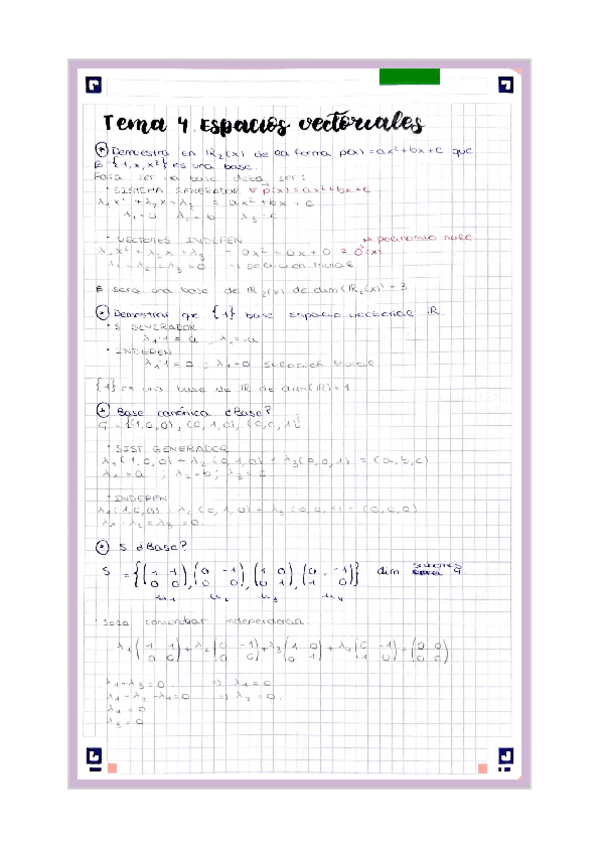 Tema 4. Espacios vectoriales
Demuestra en ℝ₂(x) de la forma p(x) = ax²+bx+c que
B {1, x, x²} es una base.
Para ser una base debe ser:
· SISTEMA GENERADOR ∀ p(x) = ax²+bx+c
λ₁x² + λ₂x + λ₃ = ax² + bx + c
λ₁ = a λ₂ = b λ₃ = c
→ polinomio nulo
· VECTORES INDEPEN
λ₁x² + λ₂x + λ₃ = 0x² + 0x + 0 = 0(x)
λ₁ = λ₂ = λ₃ = 0 → solución trivial
B será una base de ℝ₂(x) de dim(ℝ₂(x)) = 3
Demostrar que {1} base espacio vectorial ℝ.
· S GENERADOR
λ₁·1 = a ; λ₁ = a
· INDEPEN
λ₁·1 = 0 ; λ₁ = 0 solución trivial
{1} es una base de ℝ de dim(ℝ) = 1
Base canónica ¿Base?
G = {(1,0,0), (0,1,0), (0,0,1)}
· SIST GENERADOR
λ₁(1,0,0) + λ₂(0,1,0) + λ₃(0,0,1) = (a,b,c)
λ₁ = a ; λ₂ = b ; λ₃ = c
· INDEPEN
λ₁(1,0,0) + λ₂(0,1,0) + λ₃(0,0,1) = (0,0,0)
λ₁ = λ₂ = λ₃ = 0
S ¿Base?
S = {(1 1 / 0 0), (0 -1 / 0 0), (1 0 / 0 1), (0 -1 / 1 0)} dim 4
u₁ u₂ u₃ u₄
comprobar independencia
λ₁(1 1 / 0 0) + λ₂(0 -1 / 0 0) + λ₃(1 0 / 0 1) + λ₄(0 -1 / 1 0) = (0 0 / 0 0)
λ₁+λ₃ = 0 ⇒ λ₁ = 0
λ₁ - λ₂ - λ₄ = 0 ⇒ λ₂ = 0.
λ₄ = 0
λ₃ = 0